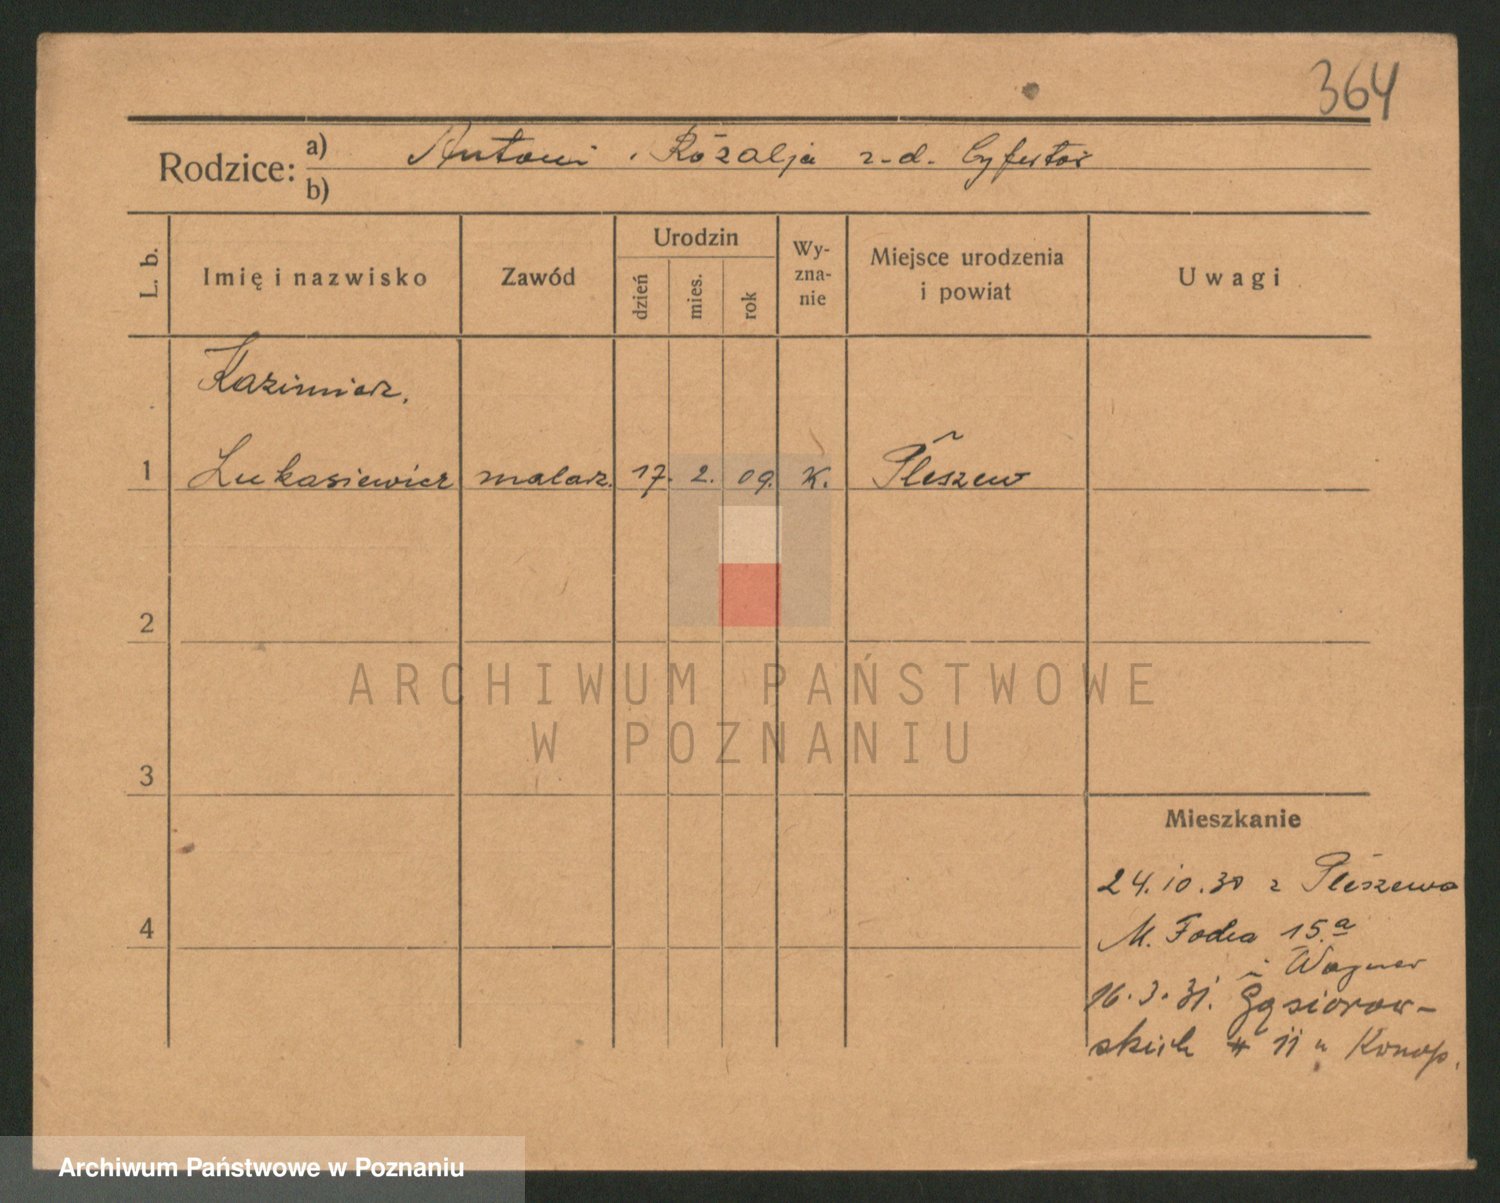 364
Rodzice: a) Antoni i Rózalja z-d.
b)
L. b.
Imię i nazwisko
Zawód
Urodzin
dzień
mies.
rok
Wy-
zna-
nie
Miejsce urodzenia
i powiat
Uwagi
Kazimierz.
1 Łukasiewicz malarz. 17. 2. 09. K. Pleszew
2
3
4
Mieszkanie
24.10.30 z Pleszewa
M. Focha 15.a
u Wagner
16.3.31. Gąsiorow-
skich 11 u Konop.
ARCHIWUM PAŃSTWOWE
W POZNANIU
Archiwum Państwowe w Poznaniu